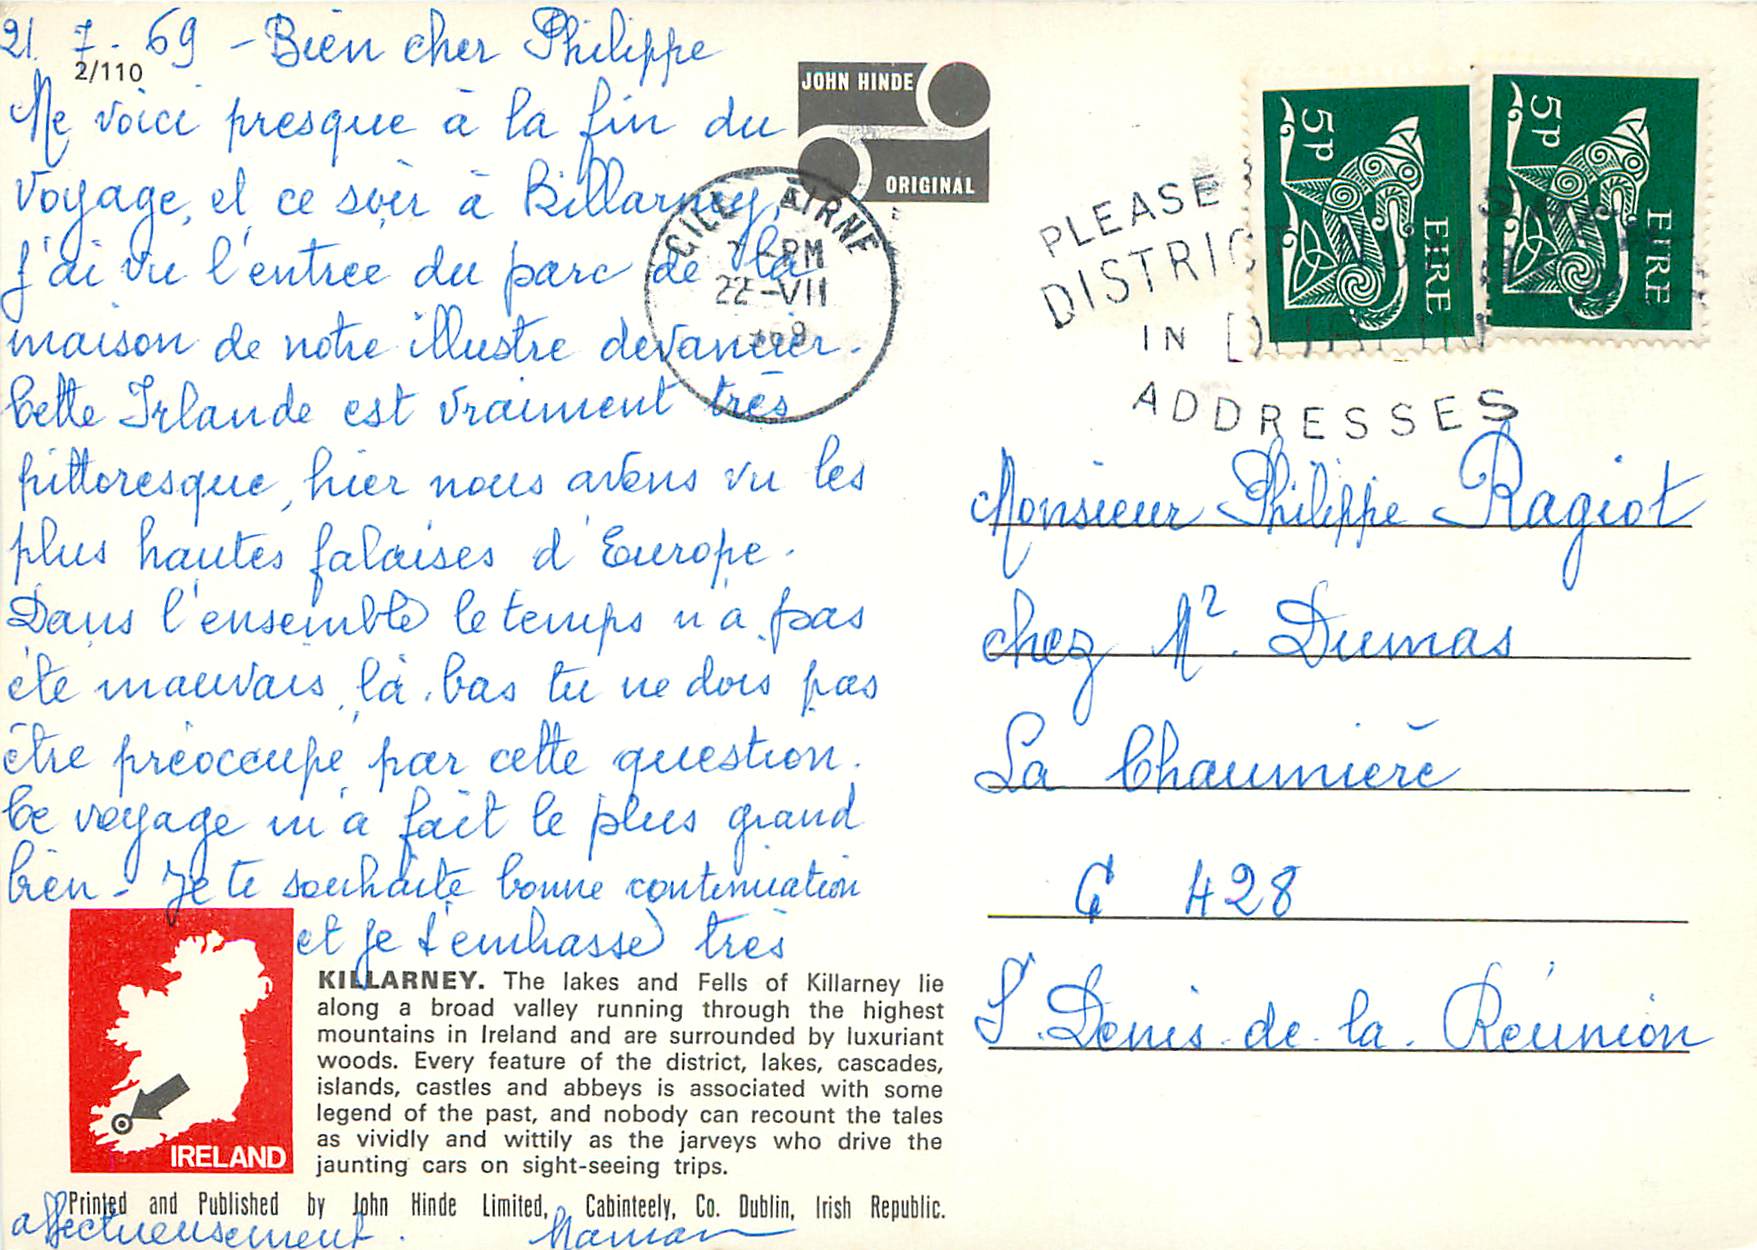 21. 7. 69 - Bien cher Philippe
2/110
Me voici presque à la fin du
voyage, et ce soir à Killarney,
j'ai vu l'entrée du parc de la
maison de notre illustre devancier.
Cette Irlande est vraiment très
pittoresque, hier nous avons vu les
plus hautes falaises d'Europe.
Dans l'ensemble le temps n'a pas
été mauvais, là-bas tu ne dois pas
être préoccupé par cette question.
Ce voyage m'a fait le plus grand
bien - Je te souhaite bonne continuation
et je t'embrasse très
affectueusement. Maman
KILLARNEY. The lakes and Fells of Killarney lie
along a broad valley running through the highest
mountains in Ireland and are surrounded by luxuriant
woods. Every feature of the district, lakes, cascades,
islands, castles and abbeys is associated with some
legend of the past, and nobody can recount the tales
as vividly and wittily as the jarveys who drive the
jaunting cars on sight-seeing trips.
IRELAND
Printed and Published by John Hinde Limited, Cabinteely, Co. Dublin, Irish Republic.
JOHN HINDE
ORIGINAL
CILL AIRNE
PM
22-VII
PLEASE
DISTRICT
IN
ADDRESSES
5p
EIRE
5p
EIRE
Monsieur Philippe Ragiot
chez Mr. Dumas
La Chaumière
C 428
St. Denis-de-la-Réunion